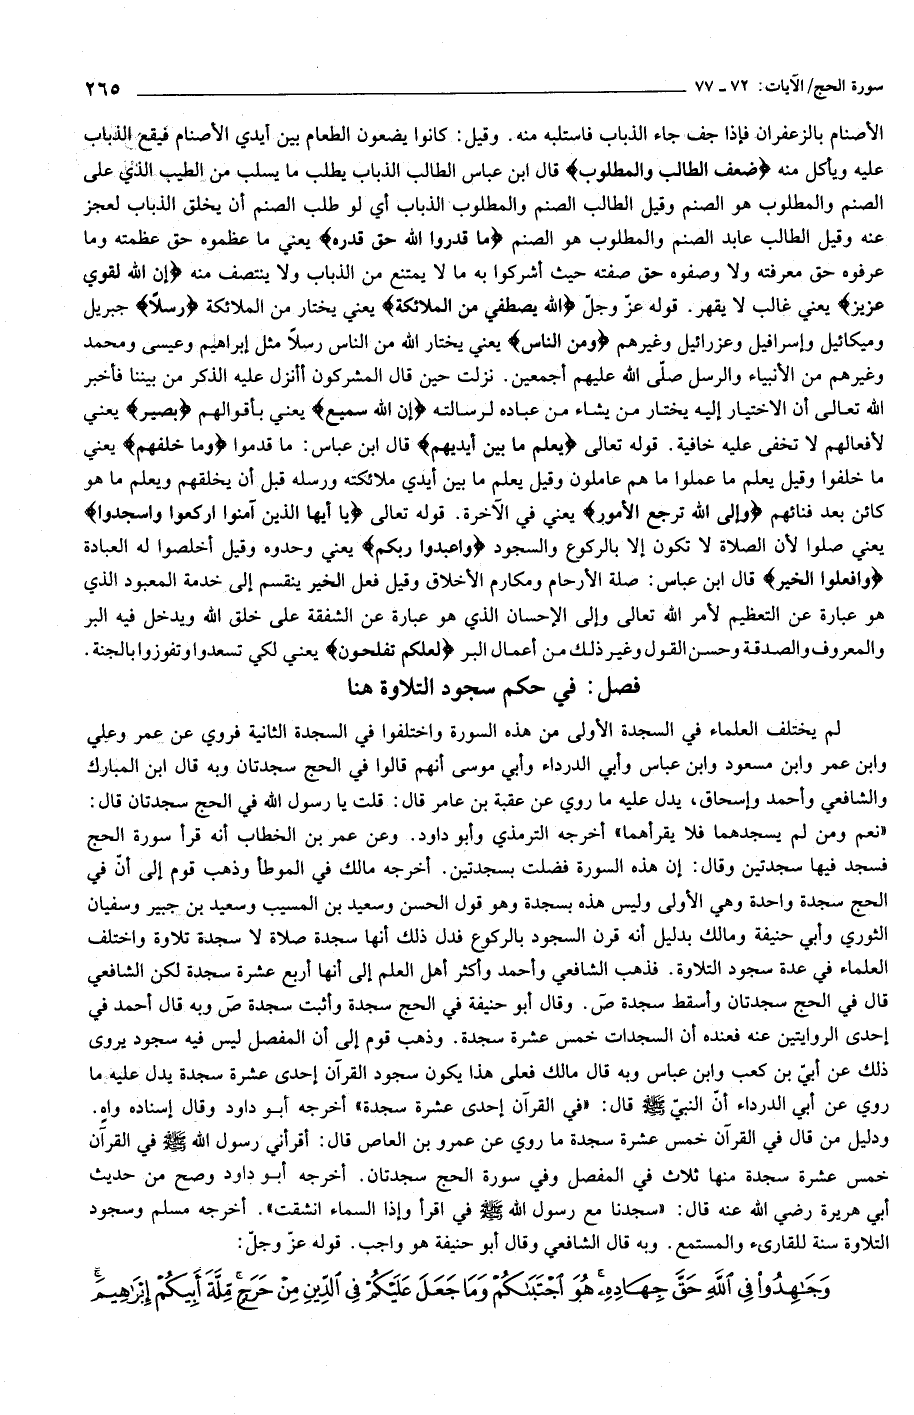 سورة الحج/ الآيات: ٧٢ ـ ٧٧ ٢٦٥
الأصنام بالزعفران فإذا جف جاء الذباب فاستلبه منه. وقيل: كانوا يضعون الطعام بين أيدي الأصنام فيقع الذباب
عليه ويأكل منه ﴿ضعف الطالب والمطلوب﴾ قال ابن عباس الطالب الذباب يطلب ما يسلب من الطيب الذي على
الصنم والمطلوب هو الصنم وقيل الطالب الصنم والمطلوب الذباب أي لو طلب الصنم أن يخلق الذباب لعجز
عنه وقيل الطالب عابد الصنم والمطلوب هو الصنم ﴿ما قدروا الله حق قدره﴾ يعني ما عظموه حق عظمته وما
عرفوه حق معرفته ولا وصفوه حق صفته حيث أشركوا به ما لا يمتنع من الذباب ولا ينتصف منه ﴿إن الله لقوي
عزيز﴾ يعني غالب لا يقهر. قوله عزّ وجلّ ﴿الله يصطفي من الملائكة﴾ يعني يختار من الملائكة ﴿رسلاً﴾ جبريل
وميكائيل وإسرافيل وعزرائيل وغيرهم ﴿ومن الناس﴾ يعني يختار الله من الناس رسلاً مثل إبراهيم وعيسى ومحمد
وغيرهم من الأنبياء والرسل صلّى الله عليهم أجمعين. نزلت حين قال المشركون أأنزل عليه الذكر من بيننا فأخبر
الله تعالى أن الاختيار إليه يختار من يشاء من عباده لرسالته ﴿إن الله سميع﴾ يعني بأقوالهم ﴿بصير﴾ يعني
لأفعالهم لا تخفى عليه خافية. قوله تعالى ﴿يعلم ما بين أيديهم﴾ قال ابن عباس: ما قدموا ﴿وما خلفهم﴾ يعني
ما خلفوا وقيل يعلم ما عملوا ما هم عاملون وقيل يعلم ما بين أيدي ملائكته ورسله قبل أن يخلقهم ويعلم ما هو
كائن بعد فنائهم ﴿وإلى الله ترجع الأمور﴾ يعني في الآخرة. قوله تعالى ﴿يا أيها الذين آمنوا اركعوا واسجدوا﴾
يعني صلوا لأن الصلاة لا تكون إلا بالركوع والسجود ﴿واعبدوا ربكم﴾ يعني وحدوه وقيل أخلصوا له العبادة
﴿وافعلوا الخير﴾ قال ابن عباس: صلة الأرحام ومكارم الأخلاق وقيل فعل الخير ينقسم إلى خدمة المعبود الذي
هو عبارة عن التعظيم لأمر الله تعالى وإلى الإحسان الذي هو عبارة عن الشفقة على خلق الله ويدخل فيه البر
والمعروف والصدقة وحسن القول وغير ذلك من أعمال البر ﴿لعلكم تفلحون﴾ يعني لكي تسعدوا وتفوزوا بالجنة.
فصل: في حكم سجود التلاوة هنا
لم يختلف العلماء في السجدة الأولى من هذه السورة واختلفوا في السجدة الثانية فروي عن عمر وعلي
وابن عمر وابن مسعود وابن عباس وأبي الدرداء وأبي موسى أنهم قالوا في الحج سجدتان وبه قال ابن المبارك
والشافعي وأحمد وإسحاق، يدل عليه ما روي عن عقبة بن عامر قال: قلت يا رسول الله في الحج سجدتان قال:
«نعم ومن لم يسجدهما فلا يقرأهما» أخرجه الترمذي وأبو داود. وعن عمر بن الخطاب أنه قرأ سورة الحج
فسجد فيها سجدتين وقال: إن هذه السورة فضلت بسجدتين. أخرجه مالك في الموطأ وذهب قوم إلى أنّ في
الحج سجدة واحدة وهي الأولى وليس هذه بسجدة وهو قول الحسن وسعيد بن المسيب وسعيد بن جبير وسفيان
الثوري وأبي حنيفة ومالك بدليل أنه قرن السجود بالركوع فدل ذلك أنها سجدة صلاة لا سجدة تلاوة واختلف
العلماء في عدة سجود التلاوة. فذهب الشافعي وأحمد وأكثر أهل العلم إلى أنها أربع عشرة سجدة لكن الشافعي
قال في الحج سجدتان وأسقط سجدة صۤ. وقال أبو حنيفة في الحج سجدة وأثبت سجدة صۤ وبه قال أحمد في
إحدى الروايتين عنه فعنده أن السجدات خمس عشرة سجدة. وذهب قوم إلى أن المفصل ليس فيه سجود يروى
ذلك عن أبيّ بن كعب وابن عباس وبه قال مالك فعلى هذا يكون سجود القرآن إحدى عشرة سجدة يدل عليه ما
روي عن أبي الدرداء أنّ النبيّ ﷺ قال: «في القرآن إحدى عشرة سجدة» أخرجه أبو داود وقال إسناده واهٍ.
ودليل من قال في القرآن خمس عشرة سجدة ما روي عن عمرو بن العاص قال: أقرأني رسول الله ﷺ في القرآن
خمس عشرة سجدة منها ثلاث في المفصل وفي سورة الحج سجدتان. أخرجه أبو داود وصح من حديث
أبي هريرة رضي الله عنه قال: «سجدنا مع رسول الله ﷺ في اقرأ وإذا السماء انشقت». أخرجه مسلم وسجود
التلاوة سنة للقارىء والمستمع. وبه قال الشافعي وقال أبو حنيفة هو واجب. قوله عزّ وجلّ:
وَجَٰهِدُوا۟ فِى ٱللَّهِ حَقَّ جِهَادِهِۦ ۚ هُوَ ٱجْتَبَىٰكُمْ وَمَا جَعَلَ عَلَيْكُمْ فِى ٱلدِّينِ مِنْ حَرَجٍ ۚ مِّلَّةَ أَبِيكُمْ إِبْرَٰهِيمَ ۚ